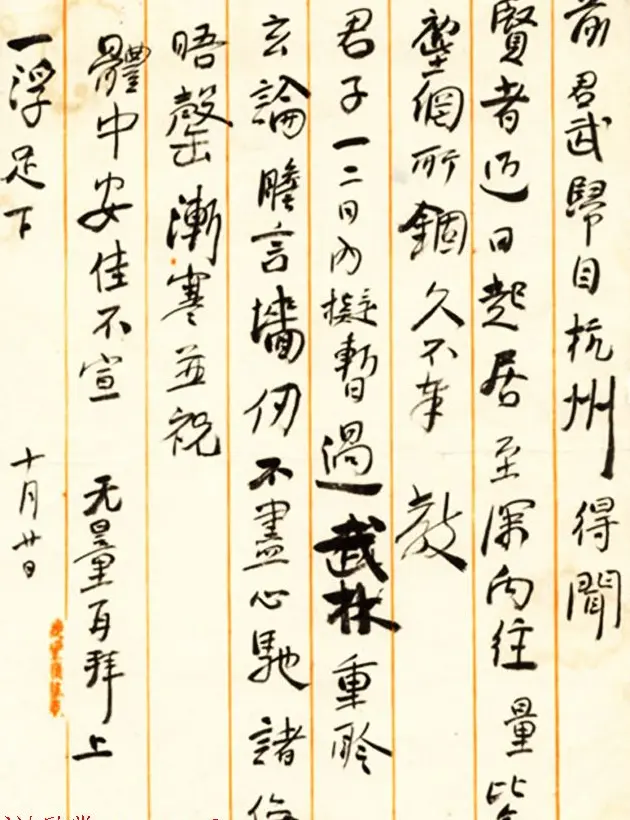 前君武歸自杭州得聞
賢者近日起居至深向往量
塵網所錮久不奉教
君子一二日內擬暫過武林重聆
玄論瞻言墻仞不盡心馳諸
晤罄漸寒並祝
體中安佳不宣 无量再拜上
一浮足下 十月廿日